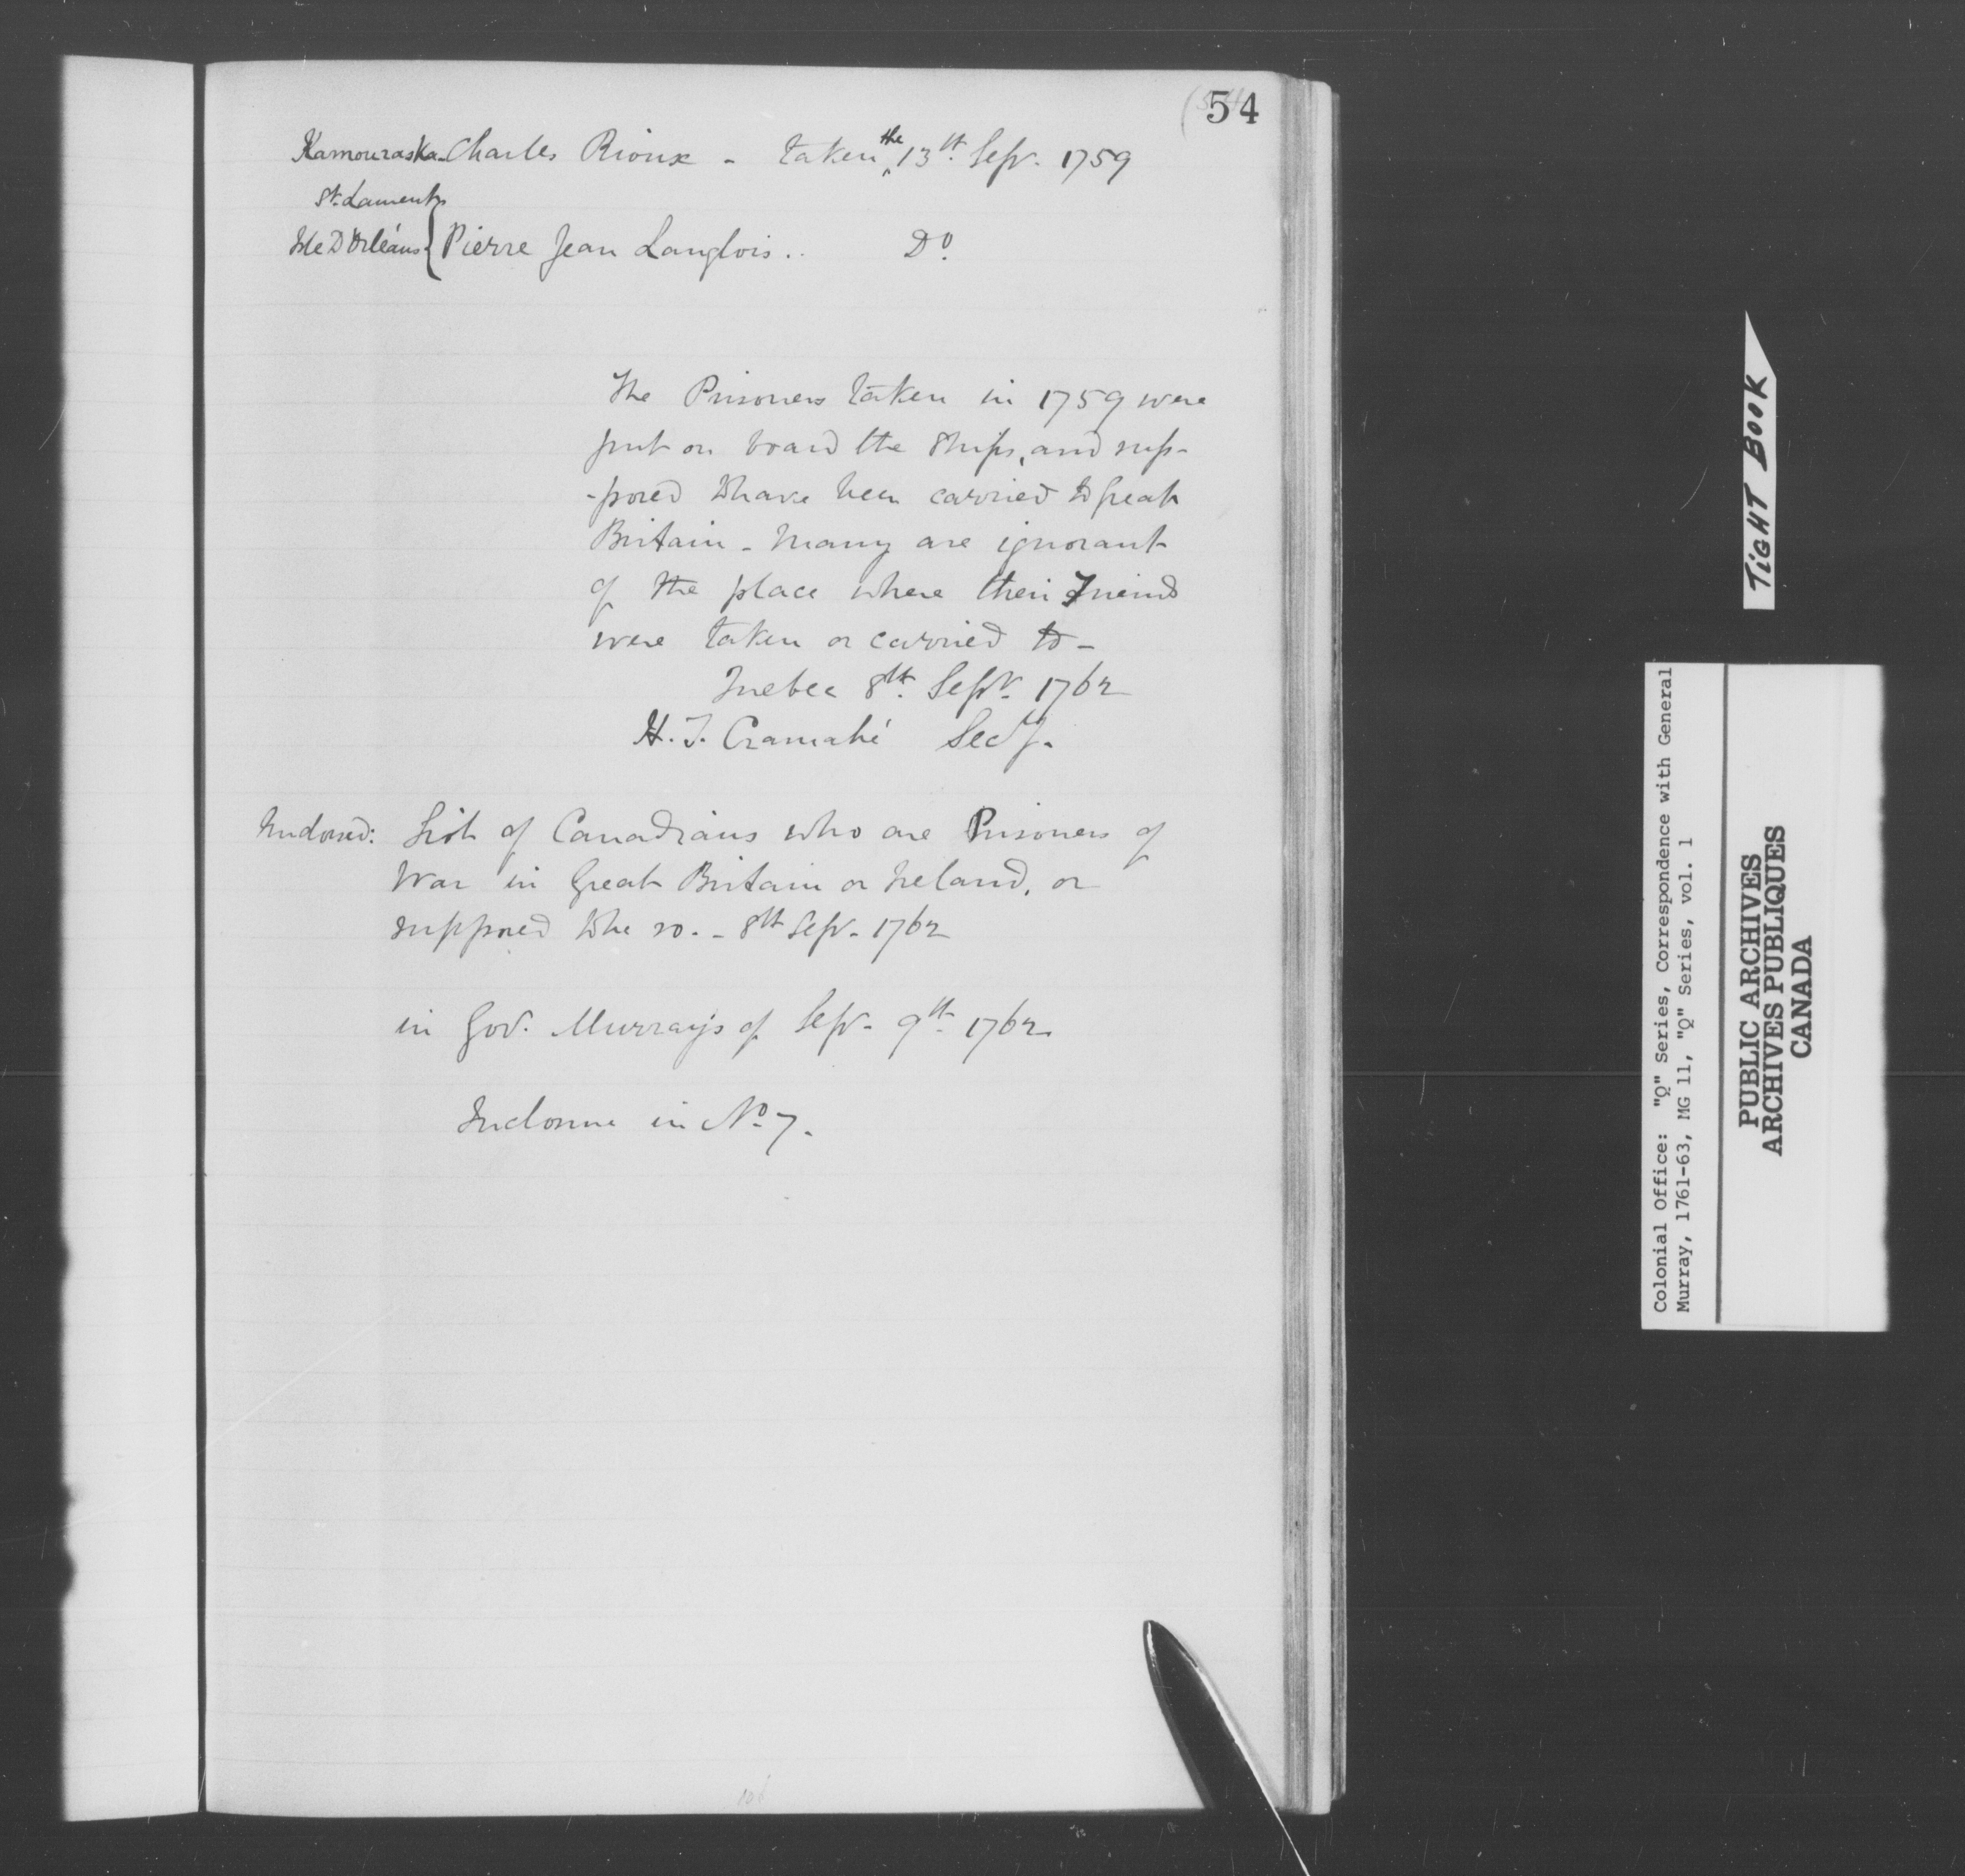 54
Kamouraska - Charles Rioux - taken the 13th Sepr. 1759
St. Laurent
Isle D'Orléans { Pierre Jean Langlois .. Do.
The Prisoners taken in 1759 were
put on board the Ships, and sup-
-posed to have been carried to Great
Britain - Many are ignorant
of the place where their Friends
were taken or carried to -
Quebec 8th. Sepr. 1762
H. T. Cramahé Secy.
Indorsed: List of Canadians who are Prisoners of
War in Great Britain or Ireland, or
supposed to be so. - 8th Sepr. 1762
in Gov. Murray's of Sepr. 9th 1762
Inclosure in No. 7.
TIGHT BOOK
Colonial Office: "Q" Series, Correspondence with General
Murray, 1761-63, MG 11, "Q" Series, vol. 1
PUBLIC ARCHIVES
ARCHIVES PUBLIQUES
CANADA